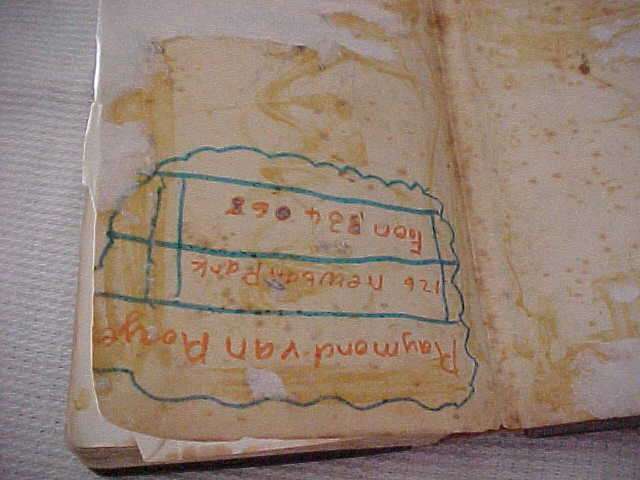 Raymond van Rooye
126 newbanpark
Foon 334 068